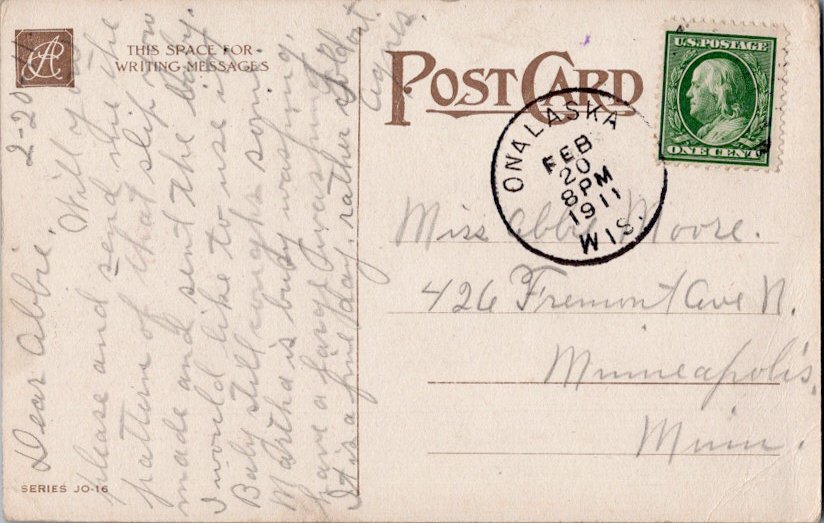 THIS SPACE FOR
WRITING MESSAGES
POST CARD
U.S. POSTAGE
ONE CENT
ONALASKA
FEB
20
8 PM
1911
WIS.
2-20
Dear Abbie.
Will you
please and send me the
pattern of that slip you
made and sent the baby.
I would like to use it.
Baby still coughs some
Martha is busy washing,
have a large washing.
It is a fine day, rather cold
Agnes.
Miss Abbie Moore.
426 Fremont Ave N.
Minneapolis,
Minn.
SERIES JO-16